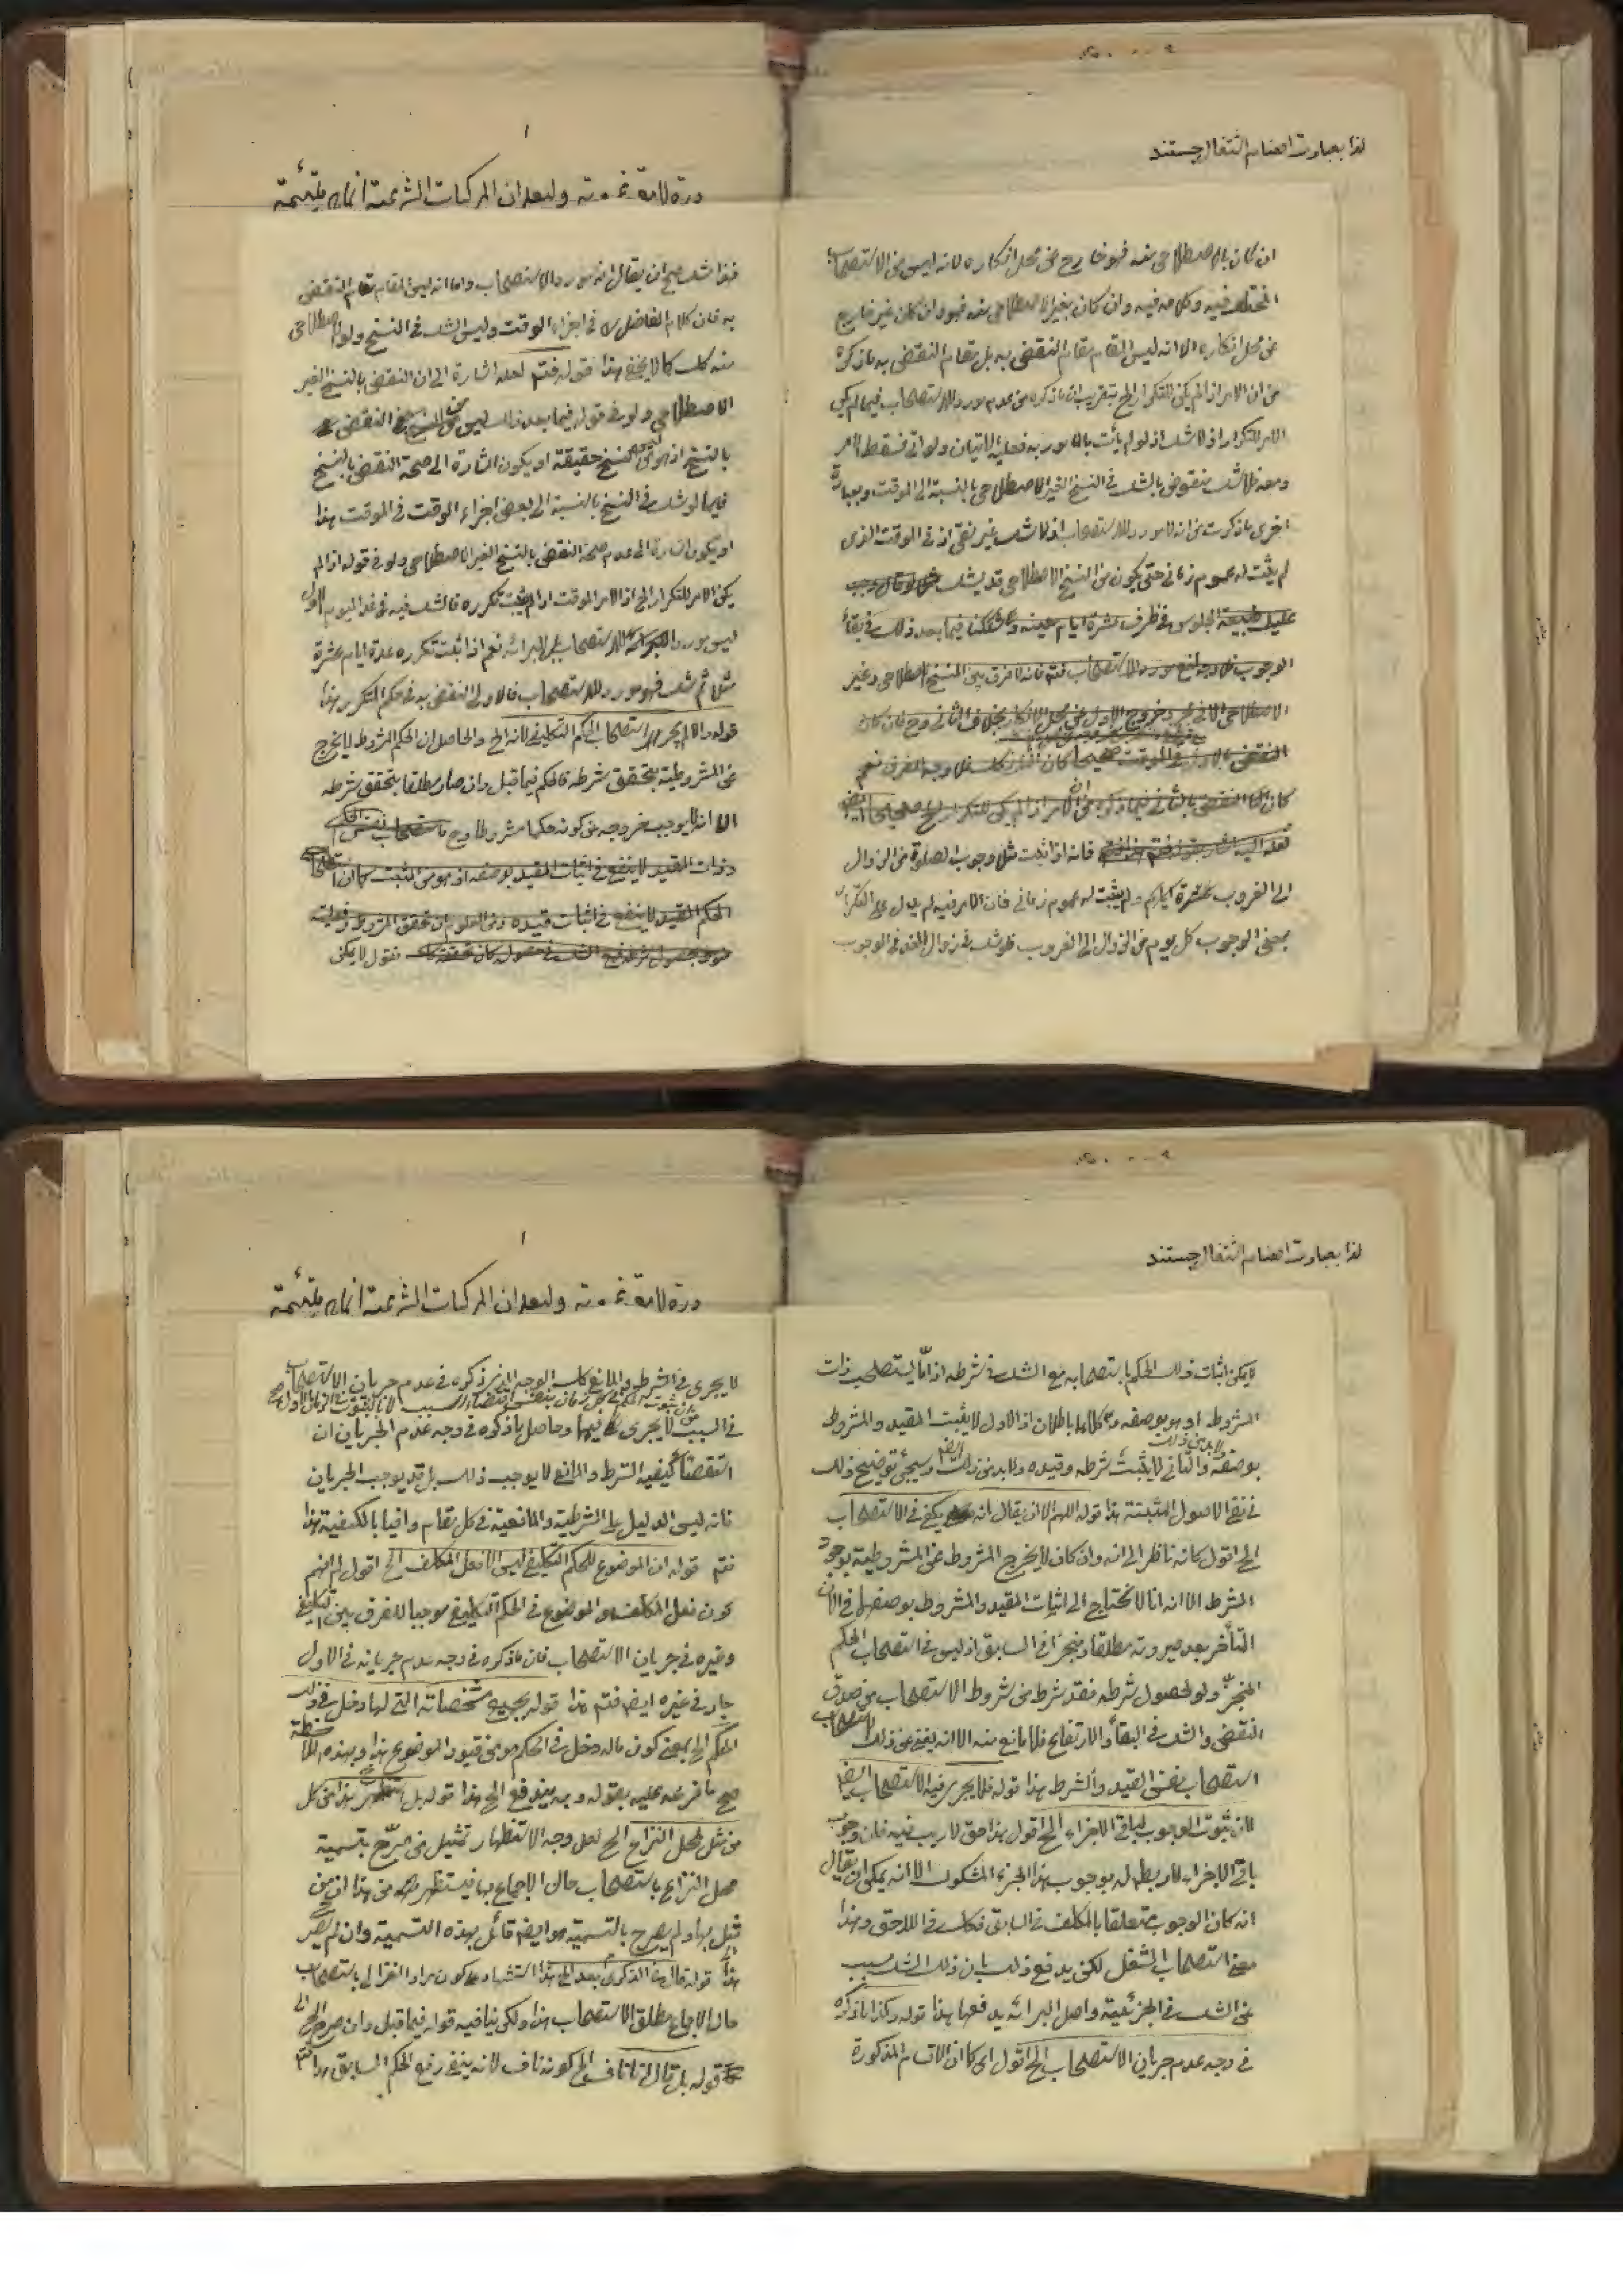 لذا بعبارت امضاء اشتغال جستند
ان كان بالاصطلاحى منه فهو خارج عن محل انكاره لانه ليس من الاستصحاب
المختلف فيه وكلامه فيه وان كان بغير الاصطلاحى منه فهو وان كان غير خارج
عن محل انكاره الا انه ليس المقام مقام النقض به بل مقام النقض به ما ذكره
من ان الامر اذا لم يكن للتكرار الخ بتقريب ان ما ذكره من عدم مورد للاستصحاب فيما لم يكن
الامر للتكرار اذ لا شك اذ لو لم يأت بالمأمور به فعليه الاتيان ولو اتى فسقط الامر
ومعه فلا شك منقوض بالشك فى النسخ الغير الاصطلاحى بالنسبة الى الموقت وبعبارة
اخرى ما ذكرت من انه لا مورد للاستصحاب اذ لا شك غير نقى اذ فى الموقت الذى
لم يثبت له عموم زمانى حتى يكون من النسخ الاصطلاحى قد يشك
عليك طبيعة الجلوس فى ظرف عشرة ايام معينه وشككنا فيما بعد ذلك فى بقاء
الوجوب فلا وجه لمنع مورد الاستصحاب فتم فانه لا فرق بين النسخ الاصطلاحى وغير
الاصطلاحى الا فى مجرد خروج الاول عن محل الانكار بخلاف الثانى وح فان كان
النقض بالاول فى الموقت صحيحا كان الثانى كذلك فلا وجه للفرق نعم
كان النقض بالثانى فيما ذكره من ان الامر اذا لم يكن للتكرار الخ صحيحا ايضا
فانه اذا ثبت مثلا وجوب الصلوة من الزوال
الى الغروب عشرة ايام ولم يثبت له عموم زمانى فان الامر فيه لم يدل على التكرار
بمعنى الوجوب كل يوم من الزوال الى الغروب فلو شك فى زوال الغد فى الوجوب
وليعلم ان المركبات الشرعية انما هى ملتئمة
فقد صح ان يقال انه مورد الاستصحاب واما انه ليس المقام مقام النقض
به فان كلام الفاضل ره فى اجزاء الوقت وليس الشك فى النسخ ولو الاصطلاحى
منه كك كما لا يخفى هذا قوله فتم لعله اشارة الى ان النقض بالنسخ الغير
الاصطلاحى ولو فى قوله فيما بعد ذلك ليس من النقض
بالنسخ اذ هو ليس بنسخ حقيقة او يكون اشارة الى صحة النقض بالنسخ
فيما لو شك فى النسخ بالنسبة الى بعض اجزاء الوقت فى الموقت هذا
او يكون اشارة الى عدم صحة النقض بالنسخ الغير الاصطلاحى ولو فى قوله اذا لم
يكن الامر للتكرار الخ اذ الامر الموقت اذا لم يثبت تكرره فالشك فيه فى غد اليوم الاول
ليس مورد الاستصحاب بل البرائه نعم اذا ثبت تكرره عدة ايام عشرة
مثلا ثم شك فهو مورد للاستصحاب فالاولى النقض به فى حكم المتكرر هذا
قوله والا لم يجر استصحاب الحكم التكليفى لانه الخ والحاصل ان الحكم المشروط لا يخرج
عن المشروطية بتحقق شرطه فالحكم فيما قبل وان صار مطلقا بتحقق شرطه
الا انه لا يوجب خروجه عن كونه حكما مشروطا وح فاستصحاب نفس الحكم
وذات المقيد لا ينفع فى اثبات المقيد بوصفه اذ هو من المثبت كما ان استصحاب
الحكم المقيد لا ينفع فى اثبات قيده ومن المعلوم ان تحقق المشروط وفعليته
فنقول لا يمكن
لذا بعبارت امضاء اشتغال جستند
لا يمكن اثبات ذلك الحكم باستصحابه مع الشك فى شرطه اذ اما يستصحب ذات
المشروط او هو بوصفه وكلاهما باطلان اذ الاول لا يثبت المقيد والمشروط
بوصفه والثانى لا يثبت شرطه وقيده ولا بد من ذلك ايضا وسيجئ توضيح ذلك
فى نفى الاصول المثبتة هذا قوله اللهم الا ان يقال انه يكفى فى الاستصحاب
الخ اقول كانه ناظر الى انه وان كان لا يخرج المشروط عن المشروطية بوجود
الشرط الا انه انا لا نحتاج الى اثبات المقيد والمشروط بوصفهما فى الآن
المتأخر بعد صيرورته مطلقا ومنجزا فى السابق اذ ليس فى استصحاب الحكم
المنجز ولو لحصول شرطه فقد شرط من شروط الاستصحاب من صدق
النقض والشك فى البقاء والارتفاع فلا مانع منه الا انه يغنى عن ذلك استصحاب
استصحاب نفس القيد والشرط هذا قوله فلا يجرى فيه الاستصحاب ايضا
لان ثبوت الوجوب لباقى الاجزاء الخ اقول هذا حق لا ريب فيه فان وجوب
باقى الاجزاء لا ربط له بوجوب هذا الجزء المشكوك الا انه يمكن ان يقال
انه كان الوجوب متعلقا بالمكلف فى السابق فكك فى اللاحق وهذا
معنى استصحاب الشغل لكن يدفع ذلك بان ذلك الشك مسبب
عن الشك فى الجزئية واصل البرائه يدفعها هذا قوله وكذا ما ذكره
فى وجه عدم جريان الاستصحاب الخ اقول اى كما ان الاقسام المذكورة
وليعلم ان المركبات الشرعية انما هى ملتئمة
لا يجرى فى الشرط والمانع كك الوجه الذى ذكره فى عدم جريان الاستصحاب
فى السبب لا يجرى فيهما وحاصل ما ذكره فى وجه عدم الجريان ان
استقصاء كيفية الشرط والمانع لا يوجب ذلك بل قد يوجب الجريان
فانه ليس الدليل على الشرطية والمانعية فى كل مقام وافيا بالكيفية هذا
فتم قوله ان الموضوع للحكم التكليفى ليس الا فعل المكلف الخ اقول لم افهم
كون فعل المكلف هو الموضوع فى الحكم التكليفى موجبا للفرق بين التكليفى
وغيره فى جريان الاستصحاب فان ما ذكره فى وجه عدم جريانه فى الاول
جار فى غيره ايضا فتم هذا قوله بجميع مشخصاته التى لها دخل فى ذلك
الحكم الخ بمعنى كون ماله دخل فى الحكم هو من قيود الموضوع هذا وبهذه الملاحظة
صح ما فرعه عليه بقوله وبه يندفع الخ هذا قوله بل استظهر هذا من كل
من مثل لمحل النزاع الخ لعل وجه الاستظهار تمثيل من صرح بتسمية
محل النزاع باستصحاب حال الاجماع بها فيستظهر من هذا ان من
مثل بها ولم يصرح بالتسمية هو ايضا قائل بهذه التسمية وان لم يصرح
هذا قوله قال فى الذكرى بعد الخ هذا استشهاد على كون مراد الغزالى باستصحاب
حال الاجماع مطلق الاستصحاب هذا ولكن ينافيه قوله فيما قبل وان صرح الخ
قوله بل قال الخ كونه ناف لانه ينفى رفع الحكم السابق هذا